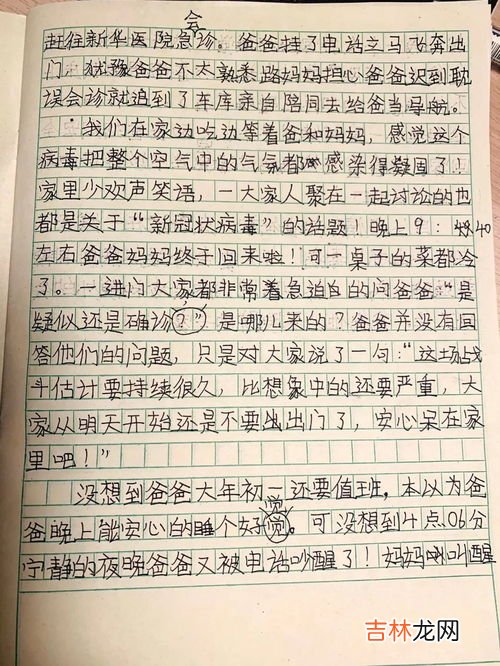 会
赶往新华医院急诊。爸爸挂了电话立马飞奔出
门。犹豫爸爸不太熟悉路妈妈担心爸爸迟到耽
误会诊就追到了车库亲自陪同去给爸当导航。
我们在家边吃边等着爸和妈妈，感觉这个
病毒把整个空气中的气氛都感染得凝固了！
家里少欢声笑语，一大家人聚在一起讨论的也
都是关于“新冠状病毒”的话题！晚上9：40
左右爸爸妈妈终于回来啦！可一桌子的菜都冷
了。一进门大家都非常着急迫的问爸爸“是
疑似还是确诊？”是哪儿来的？爸爸并没有回
答他们的问题，只是对大家说了一句：“这场战
斗估计要持续很久，比想象中的还要严重，大
家从明天开始还是不要出出门了，安心呆在家
里吧！”
没想到爸爸大年初一还要值班，本以为爸
觉
爸晚上能安心的睡个好觉。可没想到4点06分
宁静的夜晚爸爸又被电话吵醒了！妈妈叫醒
吉林龙网